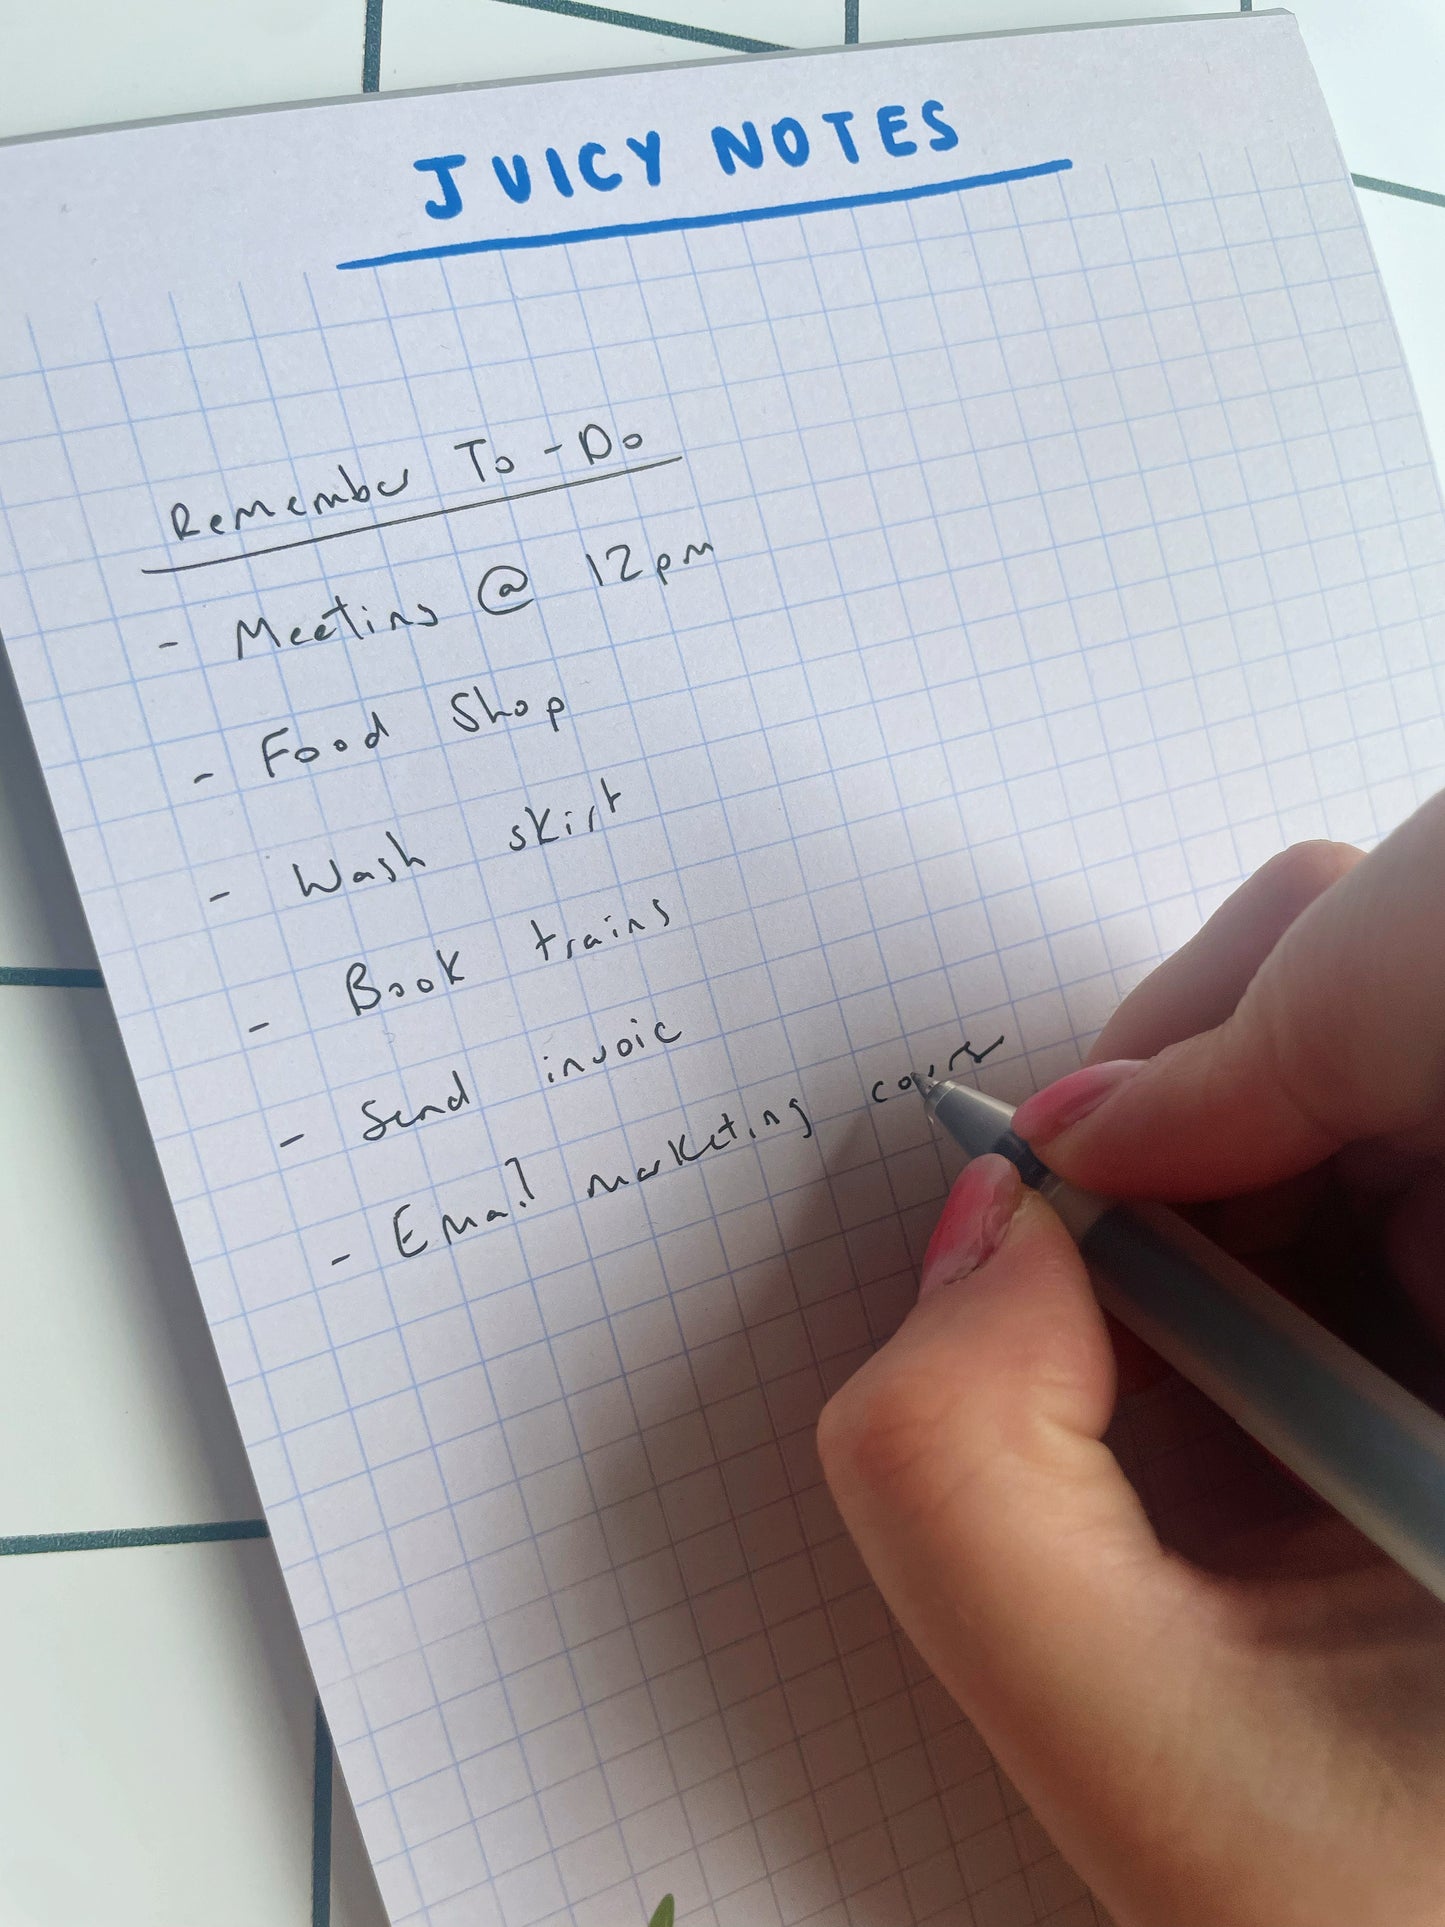 JUICY NOTES
Remember To-Do
- Meeting @ 12pm
- Food Shop
- Wash skirt
- Book trains
- Send invoice
- Email marketing course